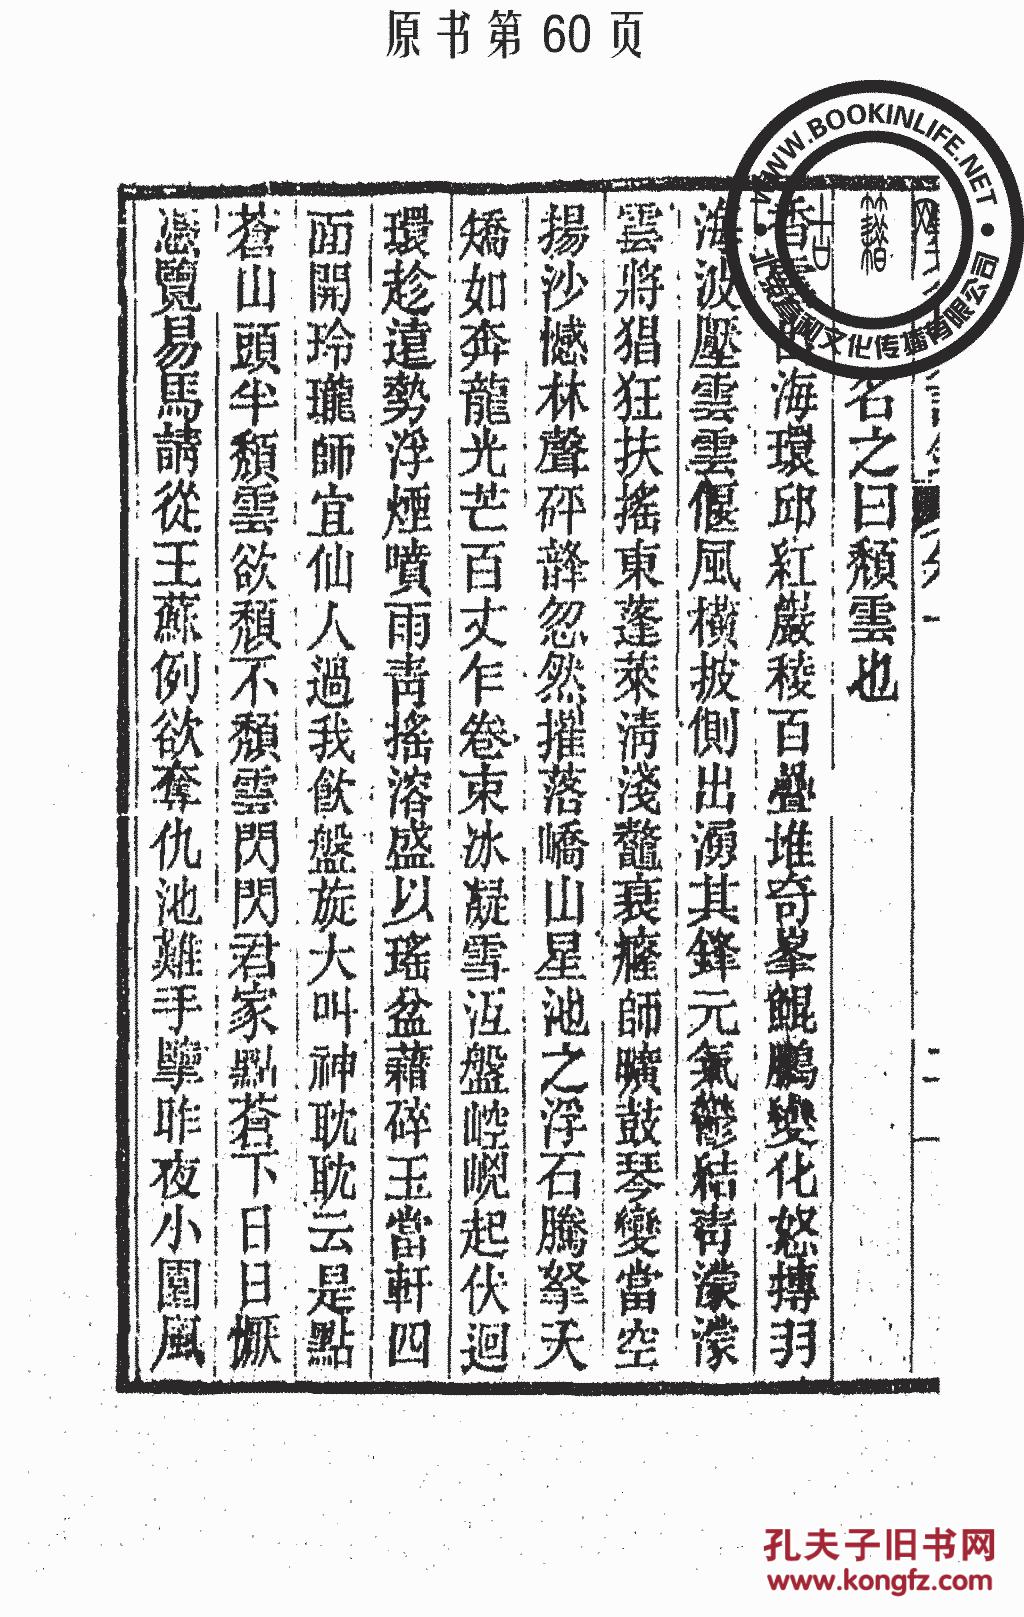 原书第60页
WWW.BOOKINLIFE.NET
北京看阅文化传播有限公司
名之曰頹雲也
海環邱紅巖稜百疊堆奇峯鯤鵬變化怒摶羽
海波壓雲雲偃風橫披側出湧其鋒元氣鬱結靑濛濛
雲將猖狂扶搖東蓬萊淸淺鼇衰癃師曠鼓琴變當空
揚沙撼林聲砰訇忽然摧落嶠山星沲之浮石騰拏天
矯如奔龍光芒百丈乍卷束冰凝雪沍盤崆峴起伏迴
環趁遠勢浮煙噴雨靑搖溶盛以瑤盆藉碎玉當軒四
面開玲瓏師宜仙人過我飲盤旋大叫神耽耽云是點
蒼山頭半頹雲欲頹不頹雲閃閃君家點蒼下日日懨
憑覽易馬請從王蘇例欲奪仇池難手擘昨夜小園風
孔夫子旧书网
www.kongfz.com